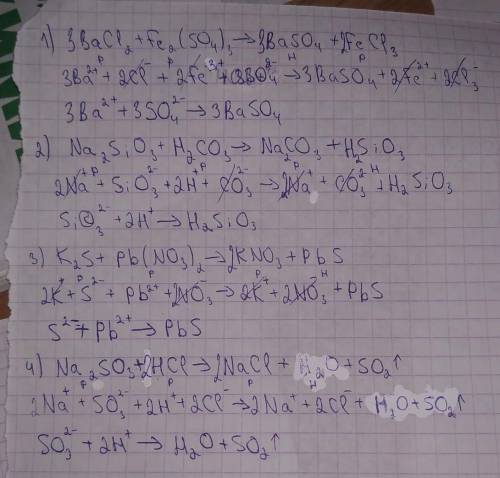 1) 3BaCl₂ + Fe₂(SO₄)₃ → 3BaSO₄ + 2FeCl₃
P P H P
3Ba²⁺ + 2Cl⁻ + 2Fe³⁺ + 3SO₄²⁻ → 3BaSO₄ + 2Fe²⁺ + 2Cl₃⁻
3Ba²⁺ + 3SO₄²⁻ → 3BaSO₄
2) Na₂SiO₃ + H₂CO₃ → Na₂CO₃ + H₂SiO₃
P P P H
2Na⁺ + SiO₃²⁻ + 2H⁺ + CO₃²⁻ → 2Na⁺ + CO₃²⁻ + H₂SiO₃
SiO₃²⁻ + 2H⁺ → H₂SiO₃
3) K₂S + Pb(NO₃)₂ → 2KNO₃ + PbS
P P P H
2K⁺ + S²⁻ + Pb²⁺ + 2NO₃⁻ → 2K⁺ + 2NO₃⁻ + PbS
S²⁻ + Pb²⁺ → PbS
4) Na₂SO₃ + 2HCl → 2NaCl + H₂O + SO₂↑
P P P H
2Na⁺ + SO₃²⁻ + 2H⁺ + 2Cl⁻ → 2Na⁺ + 2Cl⁻ + H₂O + SO₂↑
SO₃²⁻ + 2H⁺ → H₂O + SO₂↑